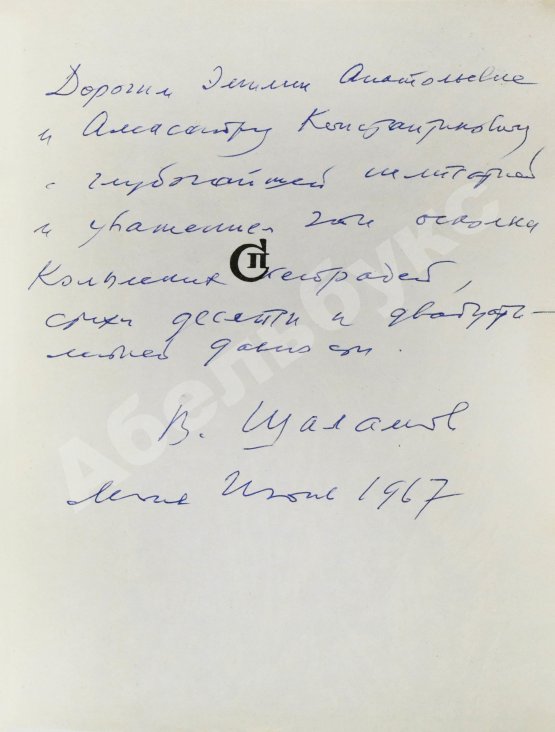 Дорогим Эмилии Анатольевне
и Александру Константиновичу
с глубочайшей симпатией
и уважением эти осколки
Колымских тетрадей,
стихи десяти и двадцати-
летней давности.
В. Шаламов
Москва Июнь 1967
СП
Абельбукс